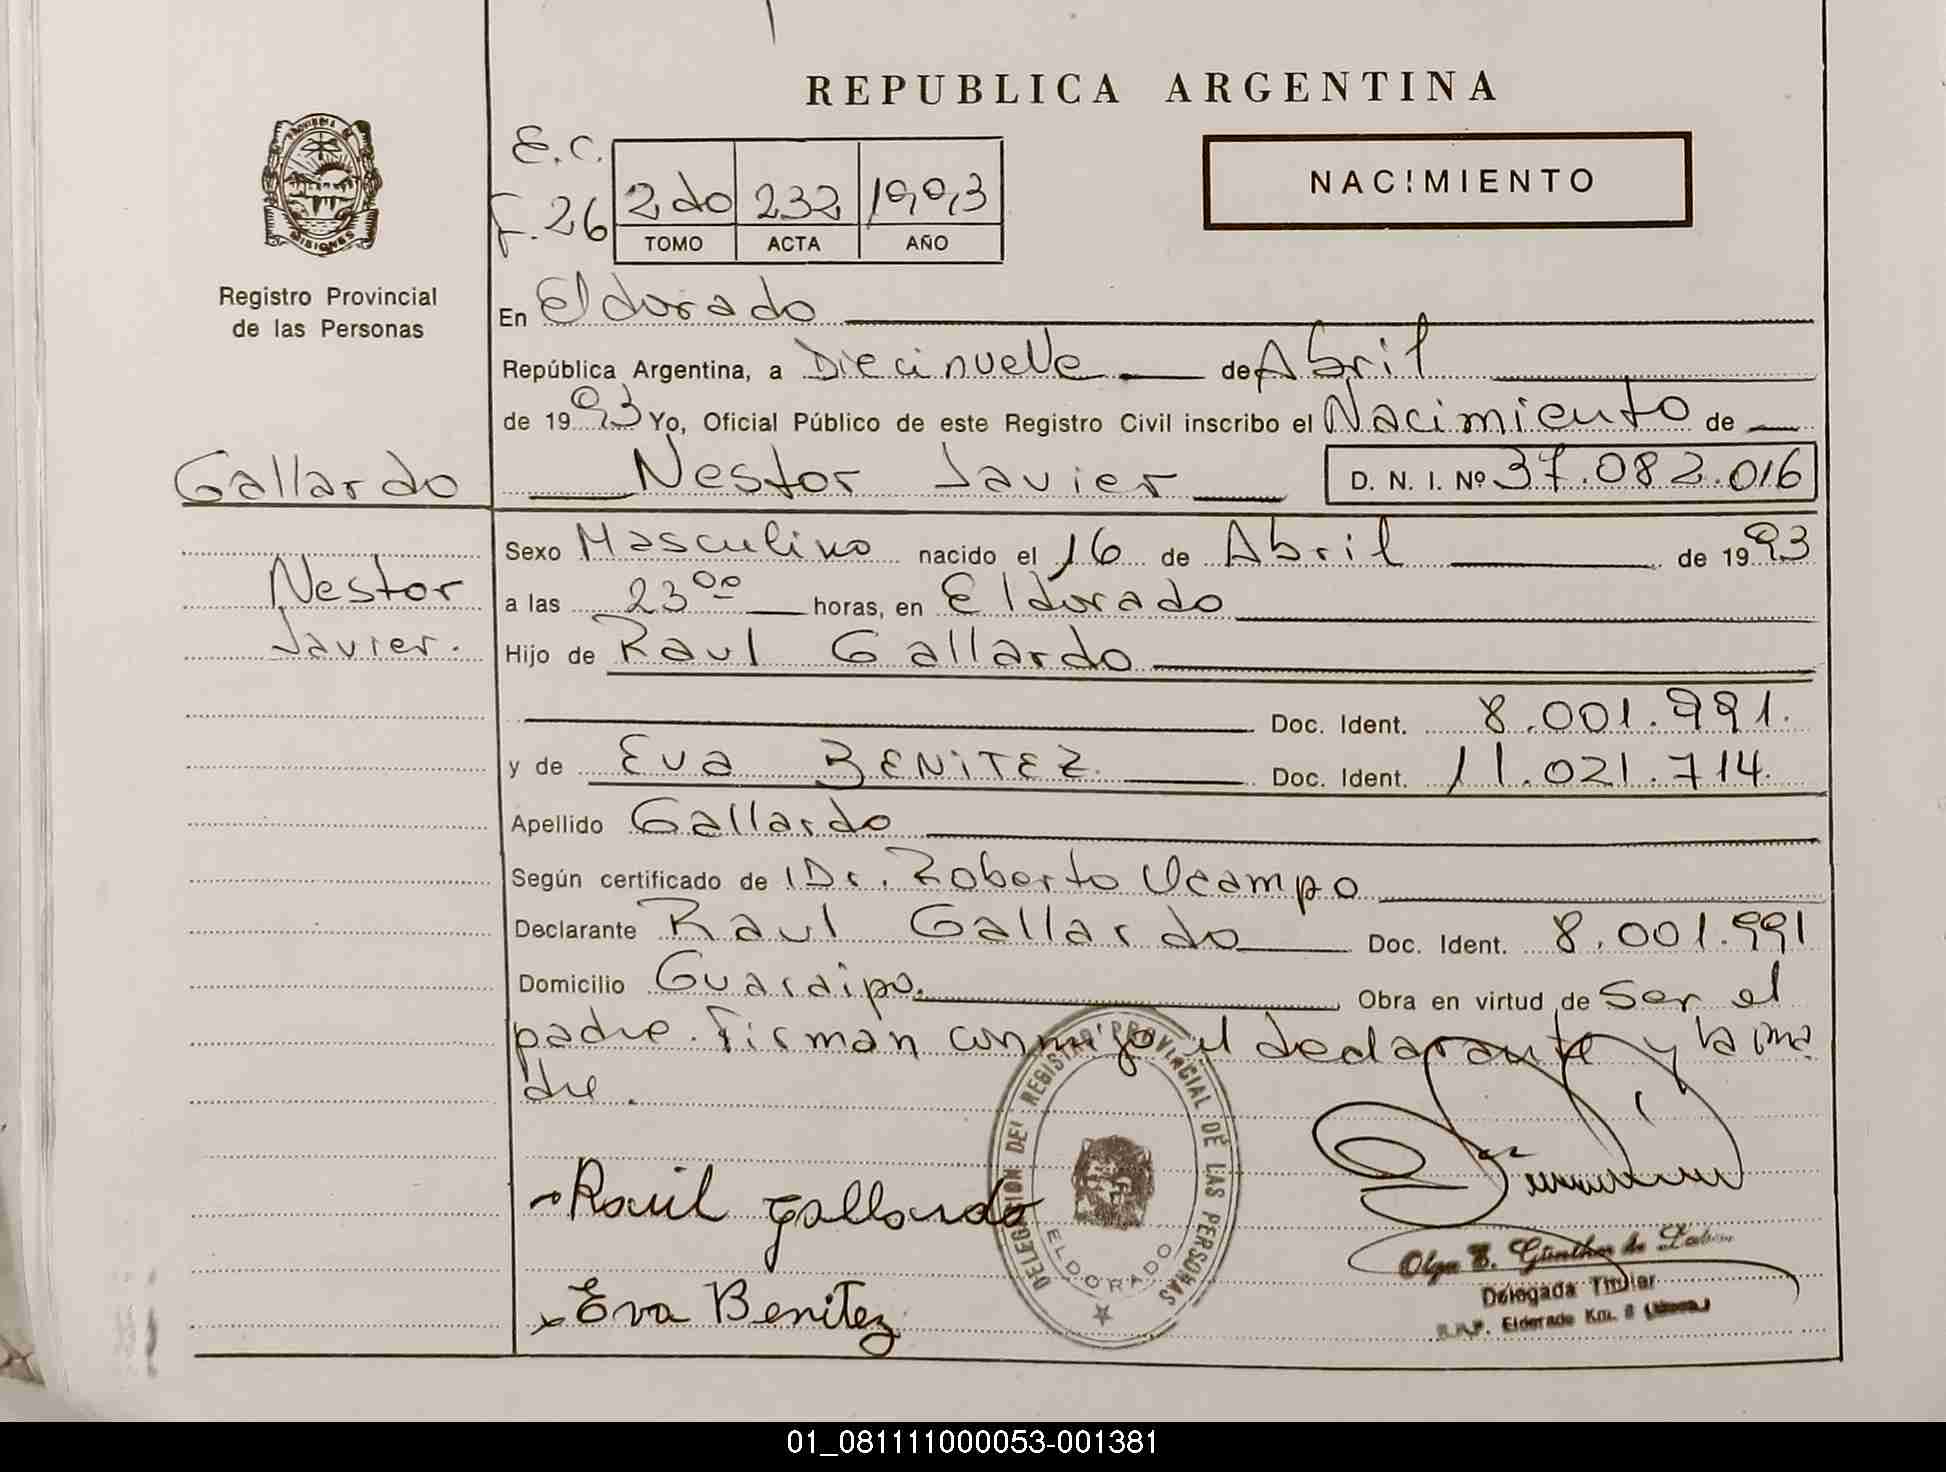 REPUBLICA ARGENTINA
PROVINCIA DE
MISIONES
Registro Provincial
de las Personas
E.C.
F.26
2do 232 1993
TOMO ACTA AÑO
NACIMIENTO
En Eldorado
República Argentina, a Diecinueve de Abril
de 1993 Yo, Oficial Público de este Registro Civil inscribo el Nacimiento de
Gallardo
Nestor Javier D. N. I. Nº 37.082.016
Nestor
Javier.
Sexo Masculino nacido el 16 de Abril de 1993
a las 23 00 horas, en Eldorado
Hijo de Raul Gallardo
Doc. Ident. 8.001.991.
y de Eva BENITEZ. Doc. Ident. 11.021.714.
Apellido Gallardo
Según certificado de Dr. Roberto Ocampo
Declarante Raul Gallardo Doc. Ident. 8.001.991
Domicilio Guaraipo. Obra en virtud de Ser el
padre. Firman conmigo el declarante y la ma
dre.
DELEGACION DEL REGISTRO PROVINCIAL DE LAS PERSONAS
ELDORADO
Raúl Gallardo
Eva Benitez
Olga E. Günther de
Delegada Titular
Eldorado Km. 8
01_081111000053-001381